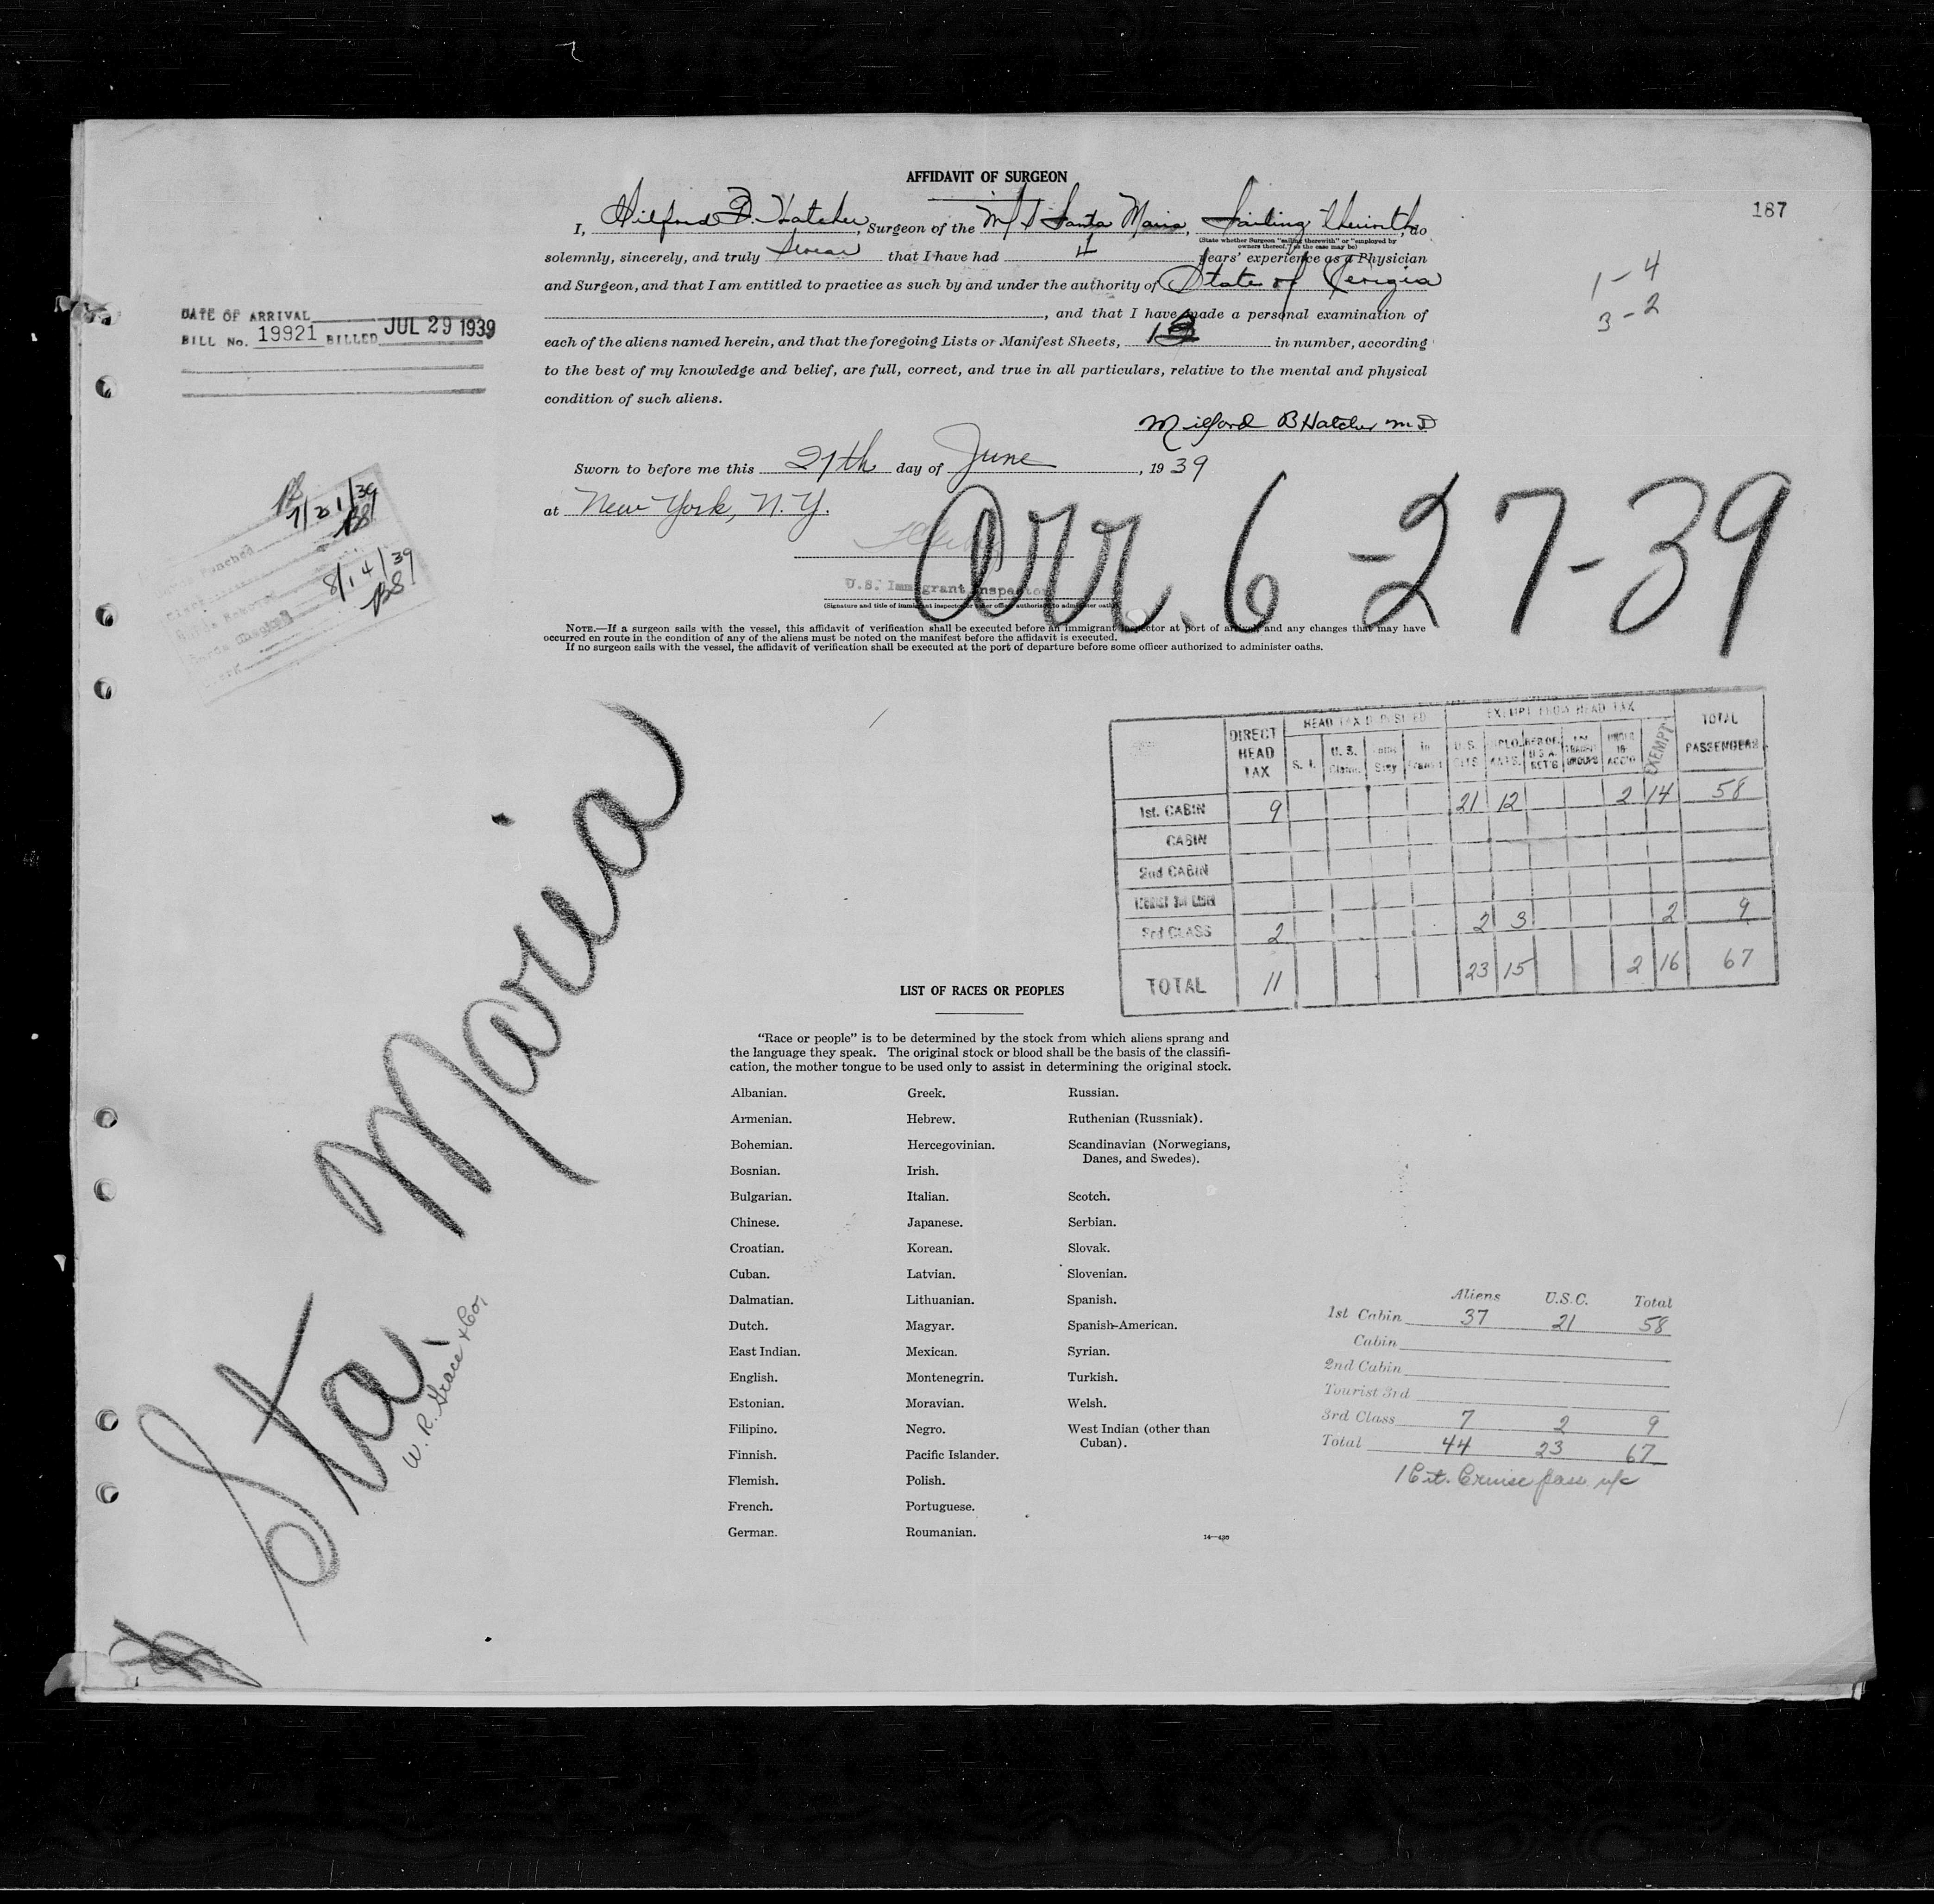 187
AFFIDAVIT OF SURGEON
I, Milford B. Hatcher, Surgeon of the M/S Santa Maria, Sailing therewith, do
(State whether Surgeon "sailing therewith" or "employed by owners thereof," as the case may be)
solemnly, sincerely, and truly swear that I have had 4 years' experience as a Physician
and Surgeon, and that I am entitled to practice as such by and under the authority of State of
, and that I have made a personal examination of
each of the aliens named herein, and that the foregoing Lists or Manifest Sheets, in number, according
to the best of my knowledge and belief, are full, correct, and true in all particulars, relative to the mental and physical
condition of such aliens.
Milford B Hatcher MD
Sworn to before me this 27th day of June, 1939
at New York, N. Y.
U.S. Immigrant Inspector
(Signature and title of immigrant inspector or other officer authorized to administer oaths)
NOTE.—If a surgeon sails with the vessel, this affidavit of verification shall be executed before an immigrant inspector at port of arrival, and any changes that may have
occurred en route in the condition of any of the aliens must be noted on the manifest before the affidavit is executed.
If no surgeon sails with the vessel, the affidavit of verification shall be executed at the port of departure before some officer authorized to administer oaths.
1-4
3-2
DATE OF ARRIVAL
BILL No. 19921 BILLED JUL 29 1939
8/14/39
Arr. 6-27-39
Sta. Maria
W. R. Grace & Co.
DIRECT HEAD TAX
HEAD TAX DEPOSITED
EXEMPT FROM HEAD TAX
TOTAL PASSENGERS
S. I. U. S. In Transit U. S. CITS. DIPLO. UNDER 16 EXEMPT
1st. CABIN 9 21 12 2 14 58
CABIN
2nd CABIN
3rd CLASS 2 2 3 2 9
TOTAL 11 23 15 2 16 67
LIST OF RACES OR PEOPLES
"Race or people" is to be determined by the stock from which aliens sprang and
the language they speak. The original stock or blood shall be the basis of the classifi-
cation, the mother tongue to be used only to assist in determining the original stock.
Albanian. Greek. Russian.
Armenian. Hebrew. Ruthenian (Russniak).
Bohemian. Hercegovinian. Scandinavian (Norwegians,
Danes, and Swedes).
Bosnian. Irish.
Bulgarian. Italian. Scotch.
Chinese. Japanese. Serbian.
Croatian. Korean. Slovak.
Cuban. Latvian. Slovenian.
Dalmatian. Lithuanian. Spanish.
Dutch. Magyar. Spanish-American.
East Indian. Mexican. Syrian.
English. Montenegrin. Turkish.
Estonian. Moravian. Welsh.
Filipino. Negro. West Indian (other than
Cuban).
Finnish. Pacific Islander.
Flemish. Polish.
French. Portuguese.
German. Roumanian.
14—430
Aliens U.S.C. Total
1st Cabin 37 21 58
Cabin
2nd Cabin
Tourist 3rd
3rd Class 7 2 9
Total 44 23 67
1 Cit. Cruise pass.